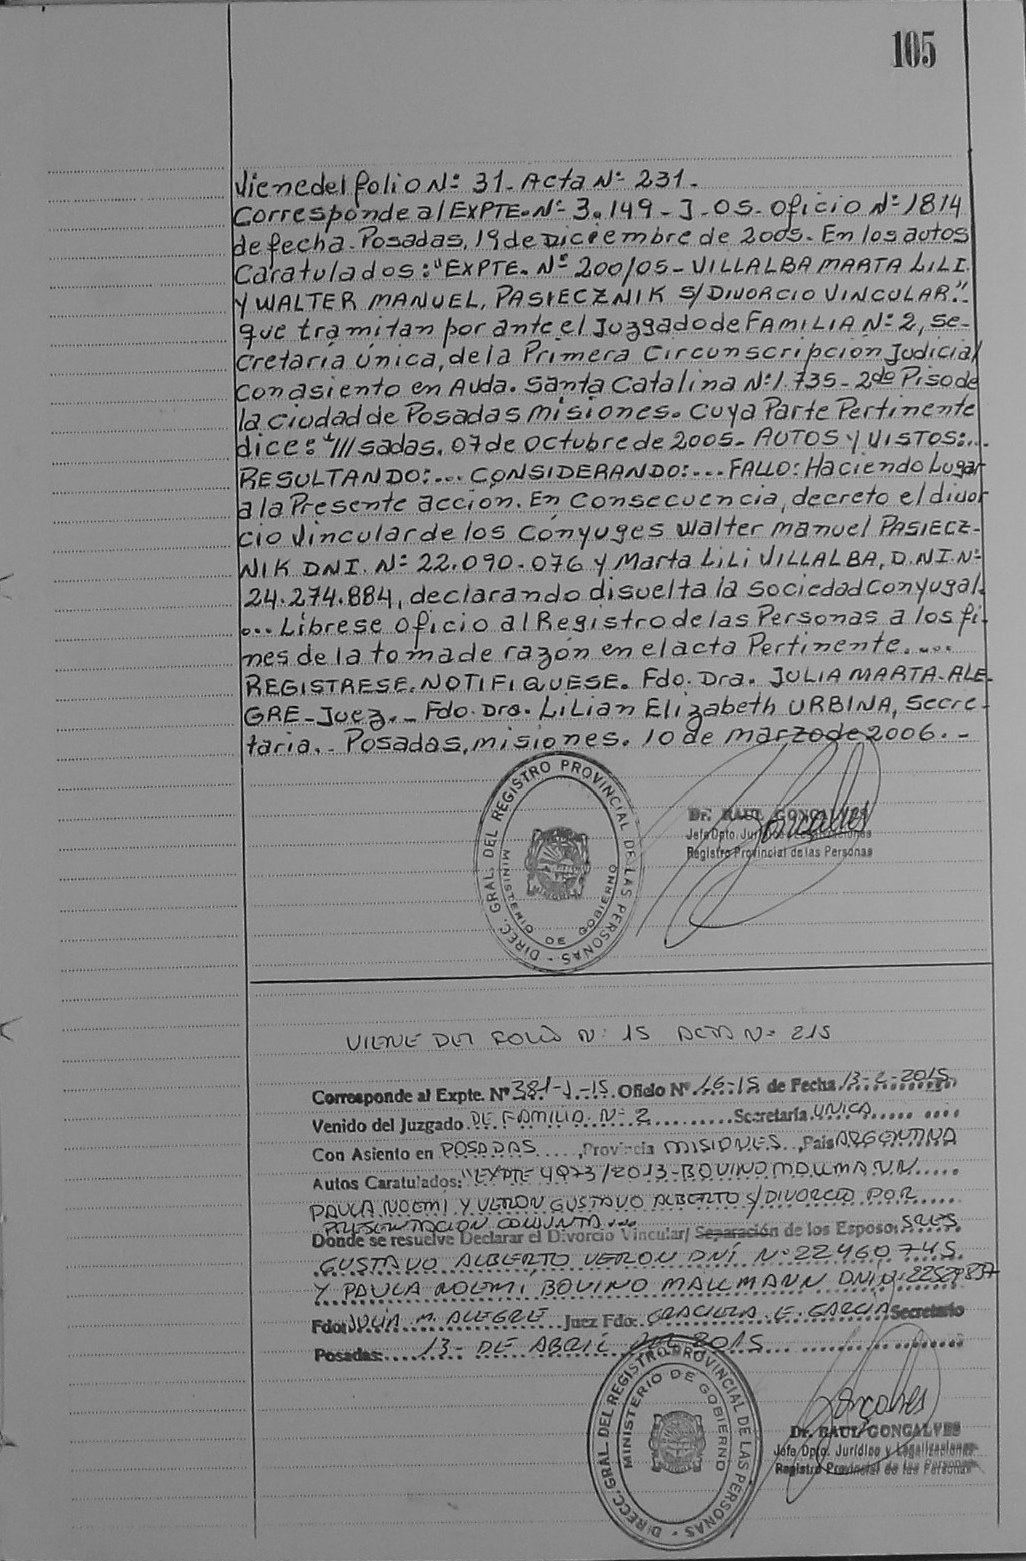 105
Viene del folio Nº 31- Acta Nº 231.
Corresponde al EXPTE. Nº 3.149-J-05- Oficio Nº 1814
de fecha- Posadas, 19 de Diciembre de 2005- En los autos
Caratulados: "EXPTE. Nº 200/05- VILLALBA MARTA LILI
Y WALTER MANUEL, PASIECZNIK S/DIVORCIO VINCULAR."
que tramitan por ante el Juzgado de FAMILIA Nº 2, se-
cretaría Única, de la Primera Circunscripción Judicial
con asiento en Avda. Santa Catalina Nº 1.735- 2do Piso de
la ciudad de Posadas misiones. Cuya Parte Pertinente
dice: "///sadas, 07 de Octubre de 2005- AUTOS Y VISTOS:...
RESULTANDO:... CONSIDERANDO:... FALLO: Haciendo Lugar
a la Presente acción. En Consecuencia, decreto el divor
cio Vincular de los Cónyuges Walter Manuel PASIECZ-
NIK DNI. Nº 22.090.076 y Marta LiLi VILLALBA, D.NI. Nº
24.274.884, declarando disuelta la Sociedad Conyugal.
... Líbrese Oficio al Registro de las Personas a los fi-
nes de la toma de razón en el acta Pertinente.....
REGISTRESE. NOTIFIQUESE. Fdo. Dra. JULIA MARTA-ALE-
GRE- Juez.- Fdo. Dra. LiLian Elizabeth URBINA, Secre-
taria.- Posadas, misiones. 10 de marzo de 2006.-
DIREC. GRAL. DEL REGISTRO PROVINCIAL DE LAS PERSONAS -
MINISTERIO DE GOBIERNO
Dr. RAUL GONCALVES
Jefe Dpto. Jurídico y Legalizaciones
Registro Provincial de las Personas
VIENE DEL FOLIO Nº 15 ACTA Nº 215
Corresponde al Expte. Nº 381-J-15. Oficio Nº 16-15 de Fecha 13-2-2015
Venido del Juzgado DE FAMILIA Nº 2 Secretaría UNICA
Con Asiento en POSADAS, Provincia MISIONES, País ARGENTINA
Autos Caratulados: "EXPTE 4973/2013-BOVINO MALLMANN
PAULA NOEMI Y VERON GUSTAVO ALBERTO S/DIVORCIO POR
PRESENTACION CONJUNTA...
Donde se resuelve Declarar el Divorcio Vincular/ Separación de los Esposos SRES
GUSTAVO ALBERTO VERON DNI Nº 22460745
Y PAULA NOEMI BOVINO MALLMANN DNI Nº 22529837
Fdo: JULIA M. ALEGRE Juez Fdo: GRACIELA E. GARCIA Secretario
Posadas: 13 - DE ABRIL DEL 2015
DIRECC. GRAL. DEL REGISTRO PROVINCIAL DE LAS PERSONAS -
MINISTERIO DE GOBIERNO
Dr. RAUL GONCALVES
Jefe Dpto. Jurídico y Legalizaciones
Registro Provincial de las Personas